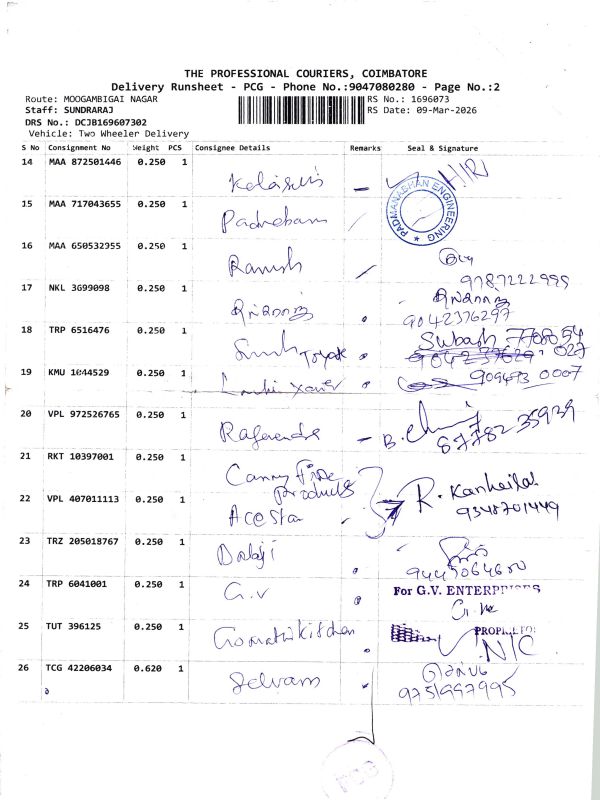 THE PROFESSIONAL COURIERS, COIMBATORE
Delivery Runsheet - PCG - Phone No.:9047080280 - Page No.:2
Route: MOOGAMBIGAI NAGAR
RS No.: 1696073
Staff: SUNDRARAJ
RS Date: 09-Mar-2026
DRS No.: DCJB169607302
Vehicle: Two Wheeler Delivery
S No Consignment No Weight PCS Consignee Details Remarks Seal & Signature
14 MAA 872501446 0.250 1
PADMANABHAN ENGINEERING
15 MAA 717043655 0.250 1
16 MAA 650532955 0.250 1
Ramesh
9787222995
17 NKL 3G99098 0.250 1
9042376297
18 TRP 6516476 0.250 1
Subash
19 KMU 1044529 0.250 1
20 VPL 972526765 0.250 1
Rajendra
87782 35939
21 RKT 10397001 0.250 1
Canny Fire
Products
R. Kanhailal
22 VPL 407011113 0.250 1
Acestar
9348701449
23 TRZ 205018767 0.250 1
Balaji
24 TRP 6041001 0.250 1
G.V
For G.V. ENTERPRISES
25 TUT 396125 0.250 1
Gomathi kitchen
N/C
26 TCG 42206034 0.620 1
Selvam
9751997995
PCG